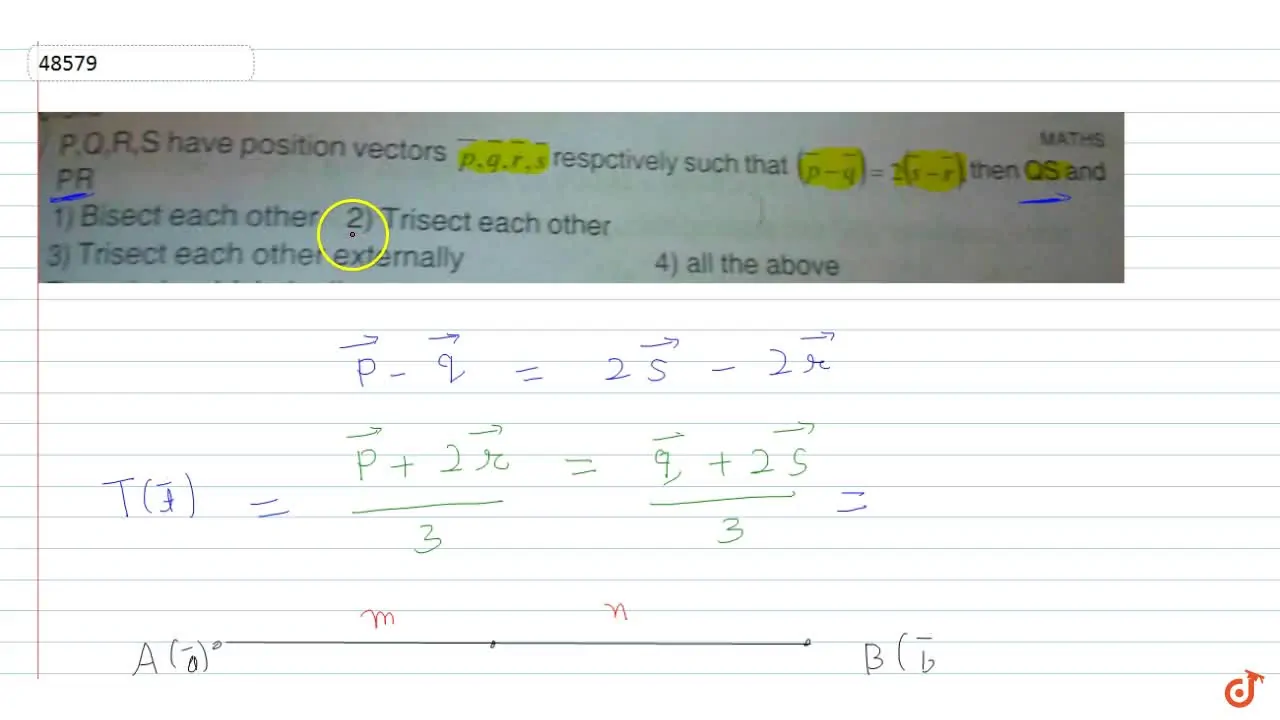 48579
MATHS
P,Q,R,S have position vectors p̅,q̅,r̅,s̅ respctively such that (p̅-q̅) = 2(s̅-r̅) then QS and
PR
1) Bisect each other 2) Trisect each other
3) Trisect each other externally 4) all the above
p⃗ - q⃗ = 2s⃗ - 2r⃗
T(t̅) = (p⃗ + 2r⃗)/3 = (q⃗ + 2s⃗)/3 =
m n
A(a̅) B(b̅